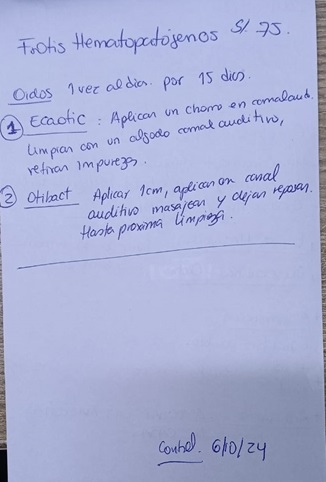 Frotis Hematopatógenos S/. 75.
Oidos 1 vez al dia. por 15 dias.
1 Ecaotic : Aplican un chorro en canal aud.
Limpian con un algodo canal auditivo,
retiran impurezas.
2 Otibact Aplicar 1cm, aplican en canal
auditivo masajean y dejan reposar.
Hasta proxima limpieza.
Control. 6/10/24